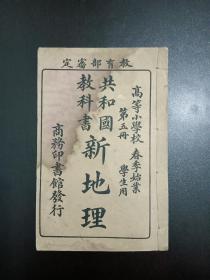 教育部審定
高等小學校 春季始業
第五冊 學生用
共和國
教科書
新地理
商務印書館發行